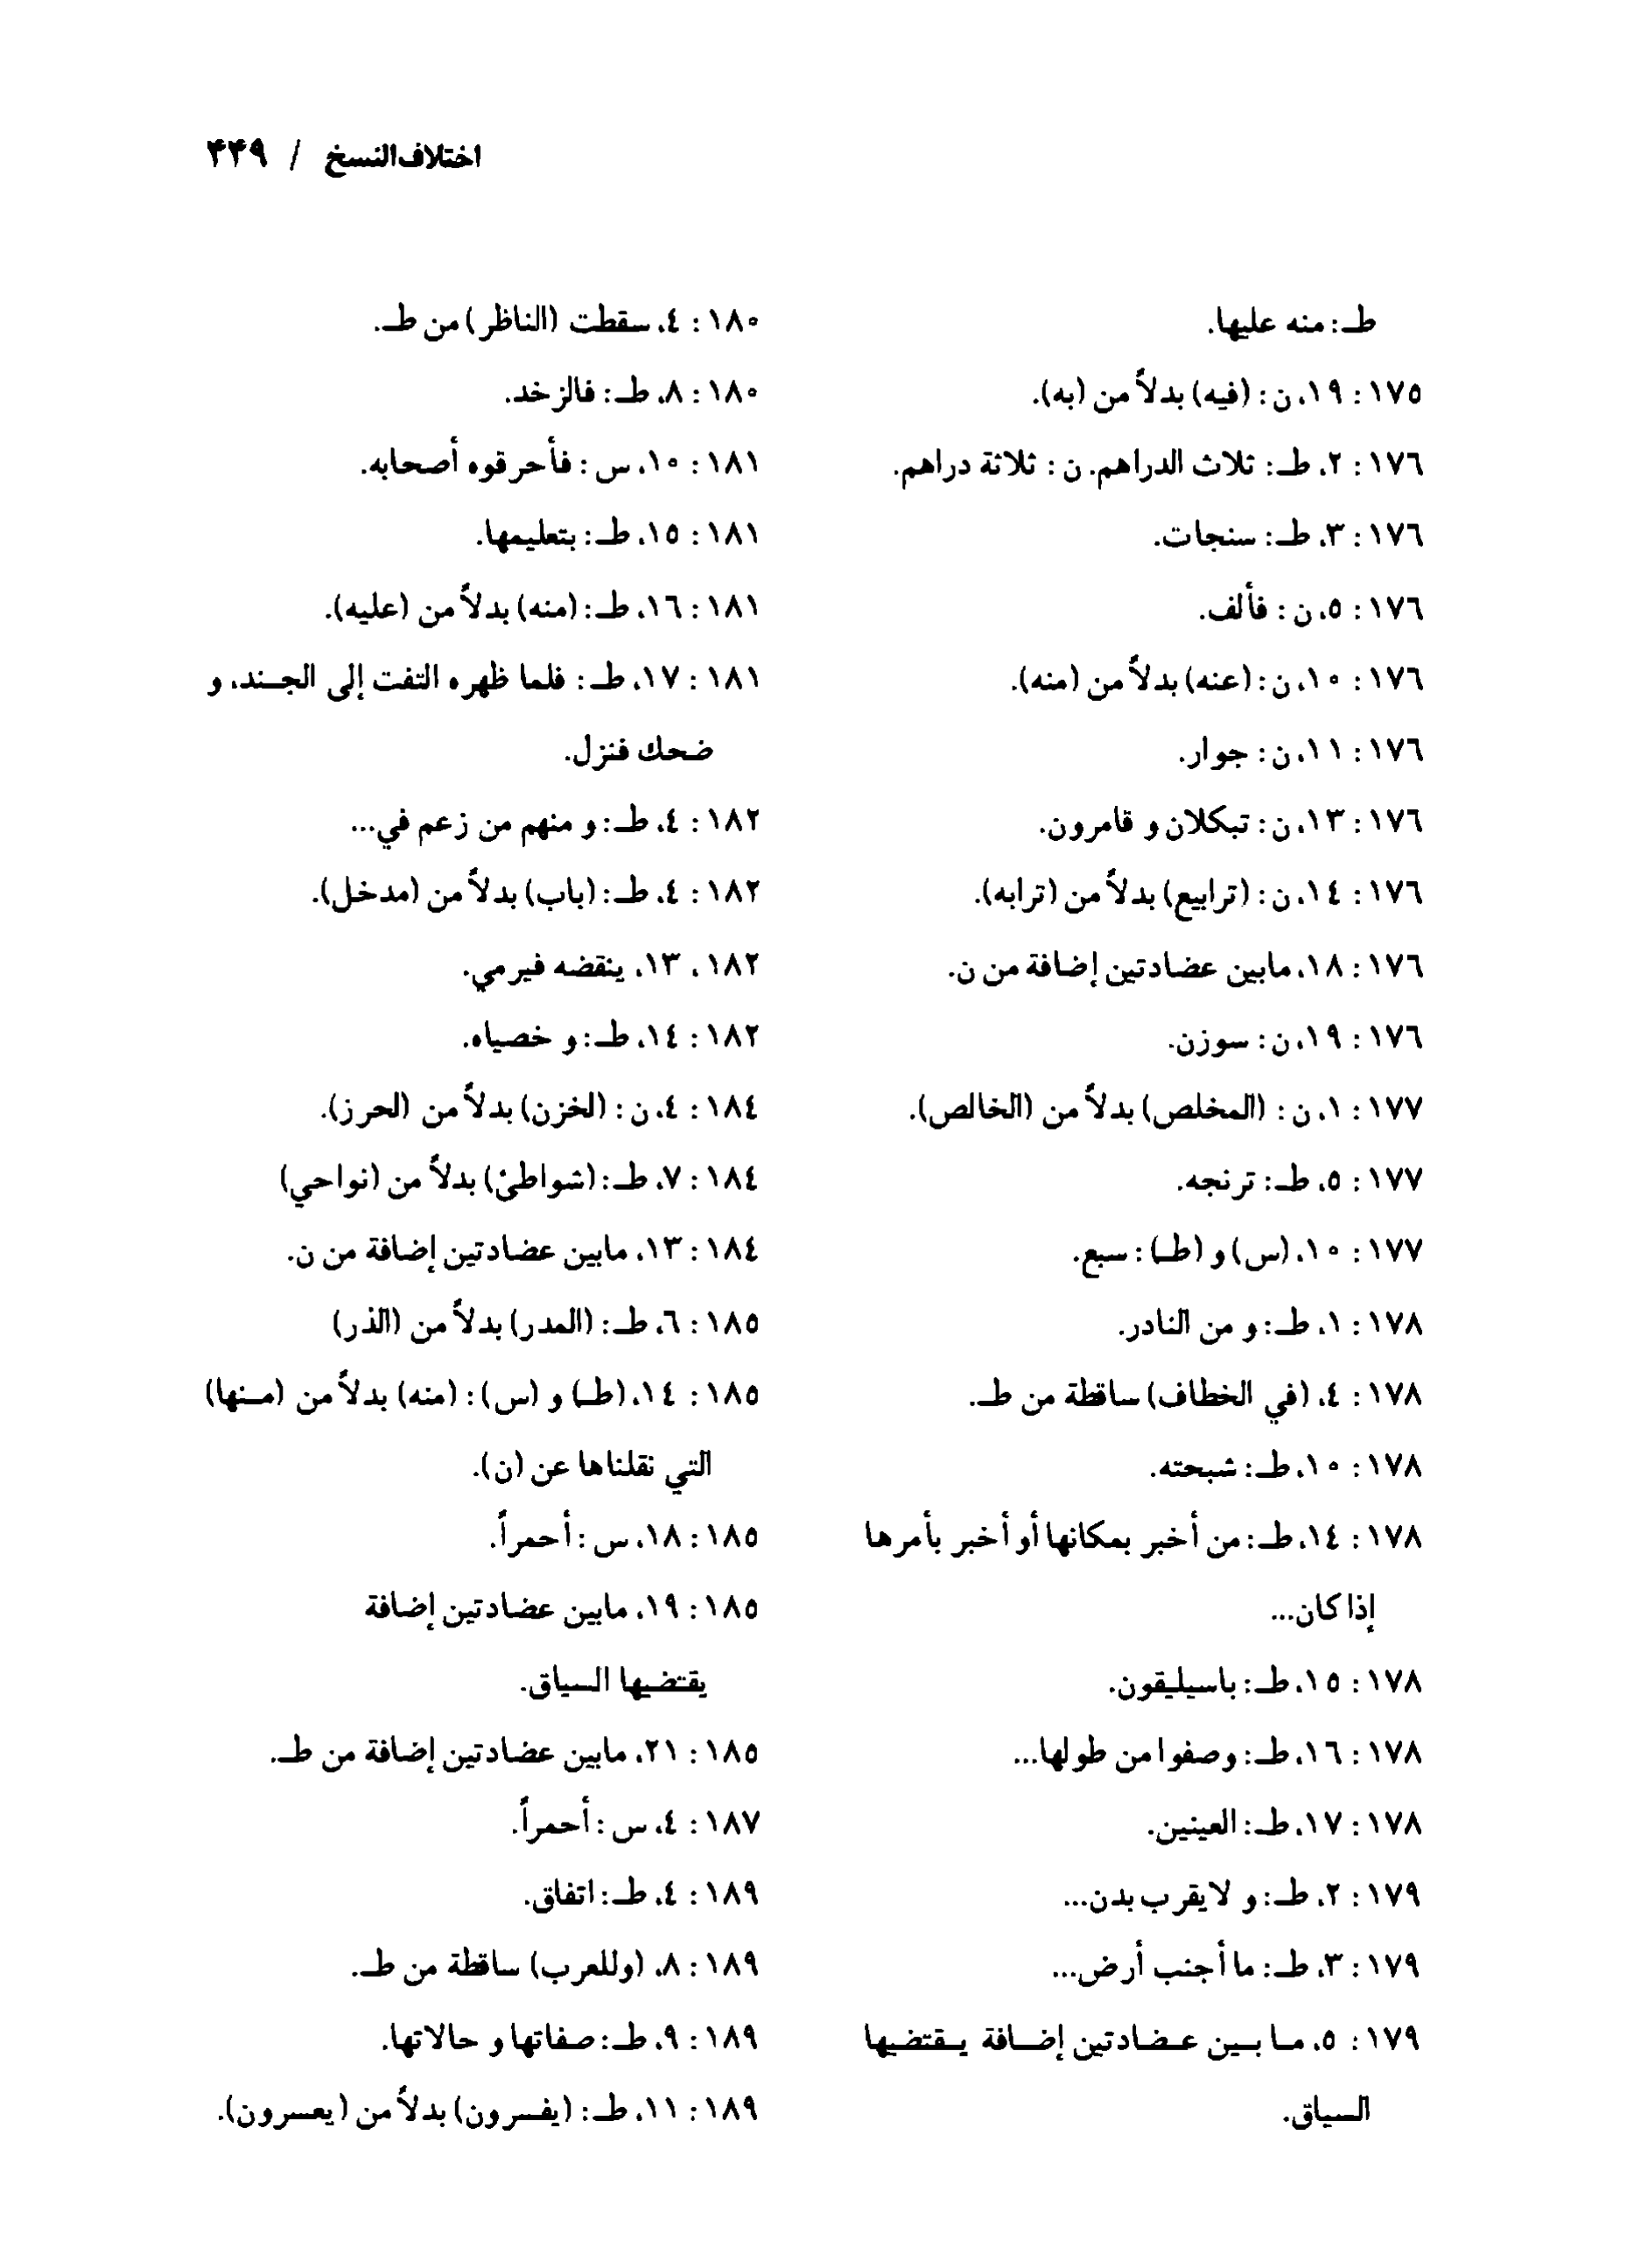 اختلاف‌النسخ / ۴۴۹
طـ: منه عليها.
١٧٥: ١٩، ن: (فيه) بدلاً من (به).
١٧٦: ٢، طـ: ثلاث الدراهم. ن: ثلاثة دراهم.
١٧٦: ٣، طـ: سنجات.
١٧٦: ٥، ن: فألف.
١٧٦: ١٠، ن: (عنه) بدلاً من (منه).
١٧٦: ١١، ن: جوار.
١٧٦: ١٣، ن: تبكلان و قامرون.
١٧٦: ١٤، ن: (ترابيع) بدلاً من (ترابه).
١٧٦: ١٨، مابين عضادتين إضافة من ن.
١٧٦: ١٩، ن: سوزن.
١٧٧: ١، ن: (المخلص) بدلاً من (الخالص).
١٧٧: ٥، طـ: ترنجه.
١٧٧: ١٠، (س) و (طـ): سبع.
١٧٨: ١، طـ: و من النادر.
١٧٨: ٤، (في الخطاف) ساقطة من طـ.
١٧٨: ١٠، طـ: شبحته.
١٧٨: ١٤، طـ: من أخبر بمكانها أو أخبر بأمرها
إذا كان...
١٧٨: ١٥، طـ: باسيليقون.
١٧٨: ١٦، طـ: وصفوا من طولها...
١٧٨: ١٧، طـ: العينين.
١٧٩: ٢، طـ: و لايقرب بدن...
١٧٩: ٣، طـ: ما أجنب أرض...
١٧٩: ٥، مـا بـين عـضادتين إضـافة يـقتضيها
السياق.
١٨٠: ٤، سقطت (الناظر) من طـ.
١٨٠: ٨، طـ: فالزخد.
١٨١: ١٠، س: فأحرقوه أصحابه.
١٨١: ١٥، طـ: بتعليمها.
١٨١: ١٦، طـ: (منه) بدلاً من (عليه).
١٨١: ١٧، طـ: فلما ظهره التفت إلى الجـند، و
ضحك فنزل.
١٨٢: ٤، طـ: و منهم من زعم في...
١٨٢: ٤، طـ: (باب) بدلاً من (مدخل).
١٨٢، ١٣، ينقضه فيرمي.
١٨٢: ١٤، طـ: و خصياه.
١٨٤: ٤، ن: (لخزن) بدلاً من (لحرز).
١٨٤: ٧، طـ: (شواطئ) بدلاً من (نواحي)
١٨٤: ١٣، مابين عضادتين إضافة من ن.
١٨٥: ٦، طـ: (المدر) بدلاً من (الذر)
١٨٥: ١٤، (طـ) و (س): (منه) بدلاً من (مـنها)
التي نقلناها عن (ن).
١٨٥: ١٨، س: أحمراً.
١٨٥: ١٩، مابين عضادتين إضافة
يقتضيها السياق.
١٨٥: ٢١، مابين عضادتين إضافة من طـ.
١٨٧: ٤، س: أحمراً.
١٨٩: ٤، طـ: اتفاق.
١٨٩: ٨، (وللعرب) ساقطة من طـ.
١٨٩: ٩، طـ: صفاتها و حالاتها.
١٨٩: ١١، طـ: (يفسرون) بدلاً من (يعسرون).